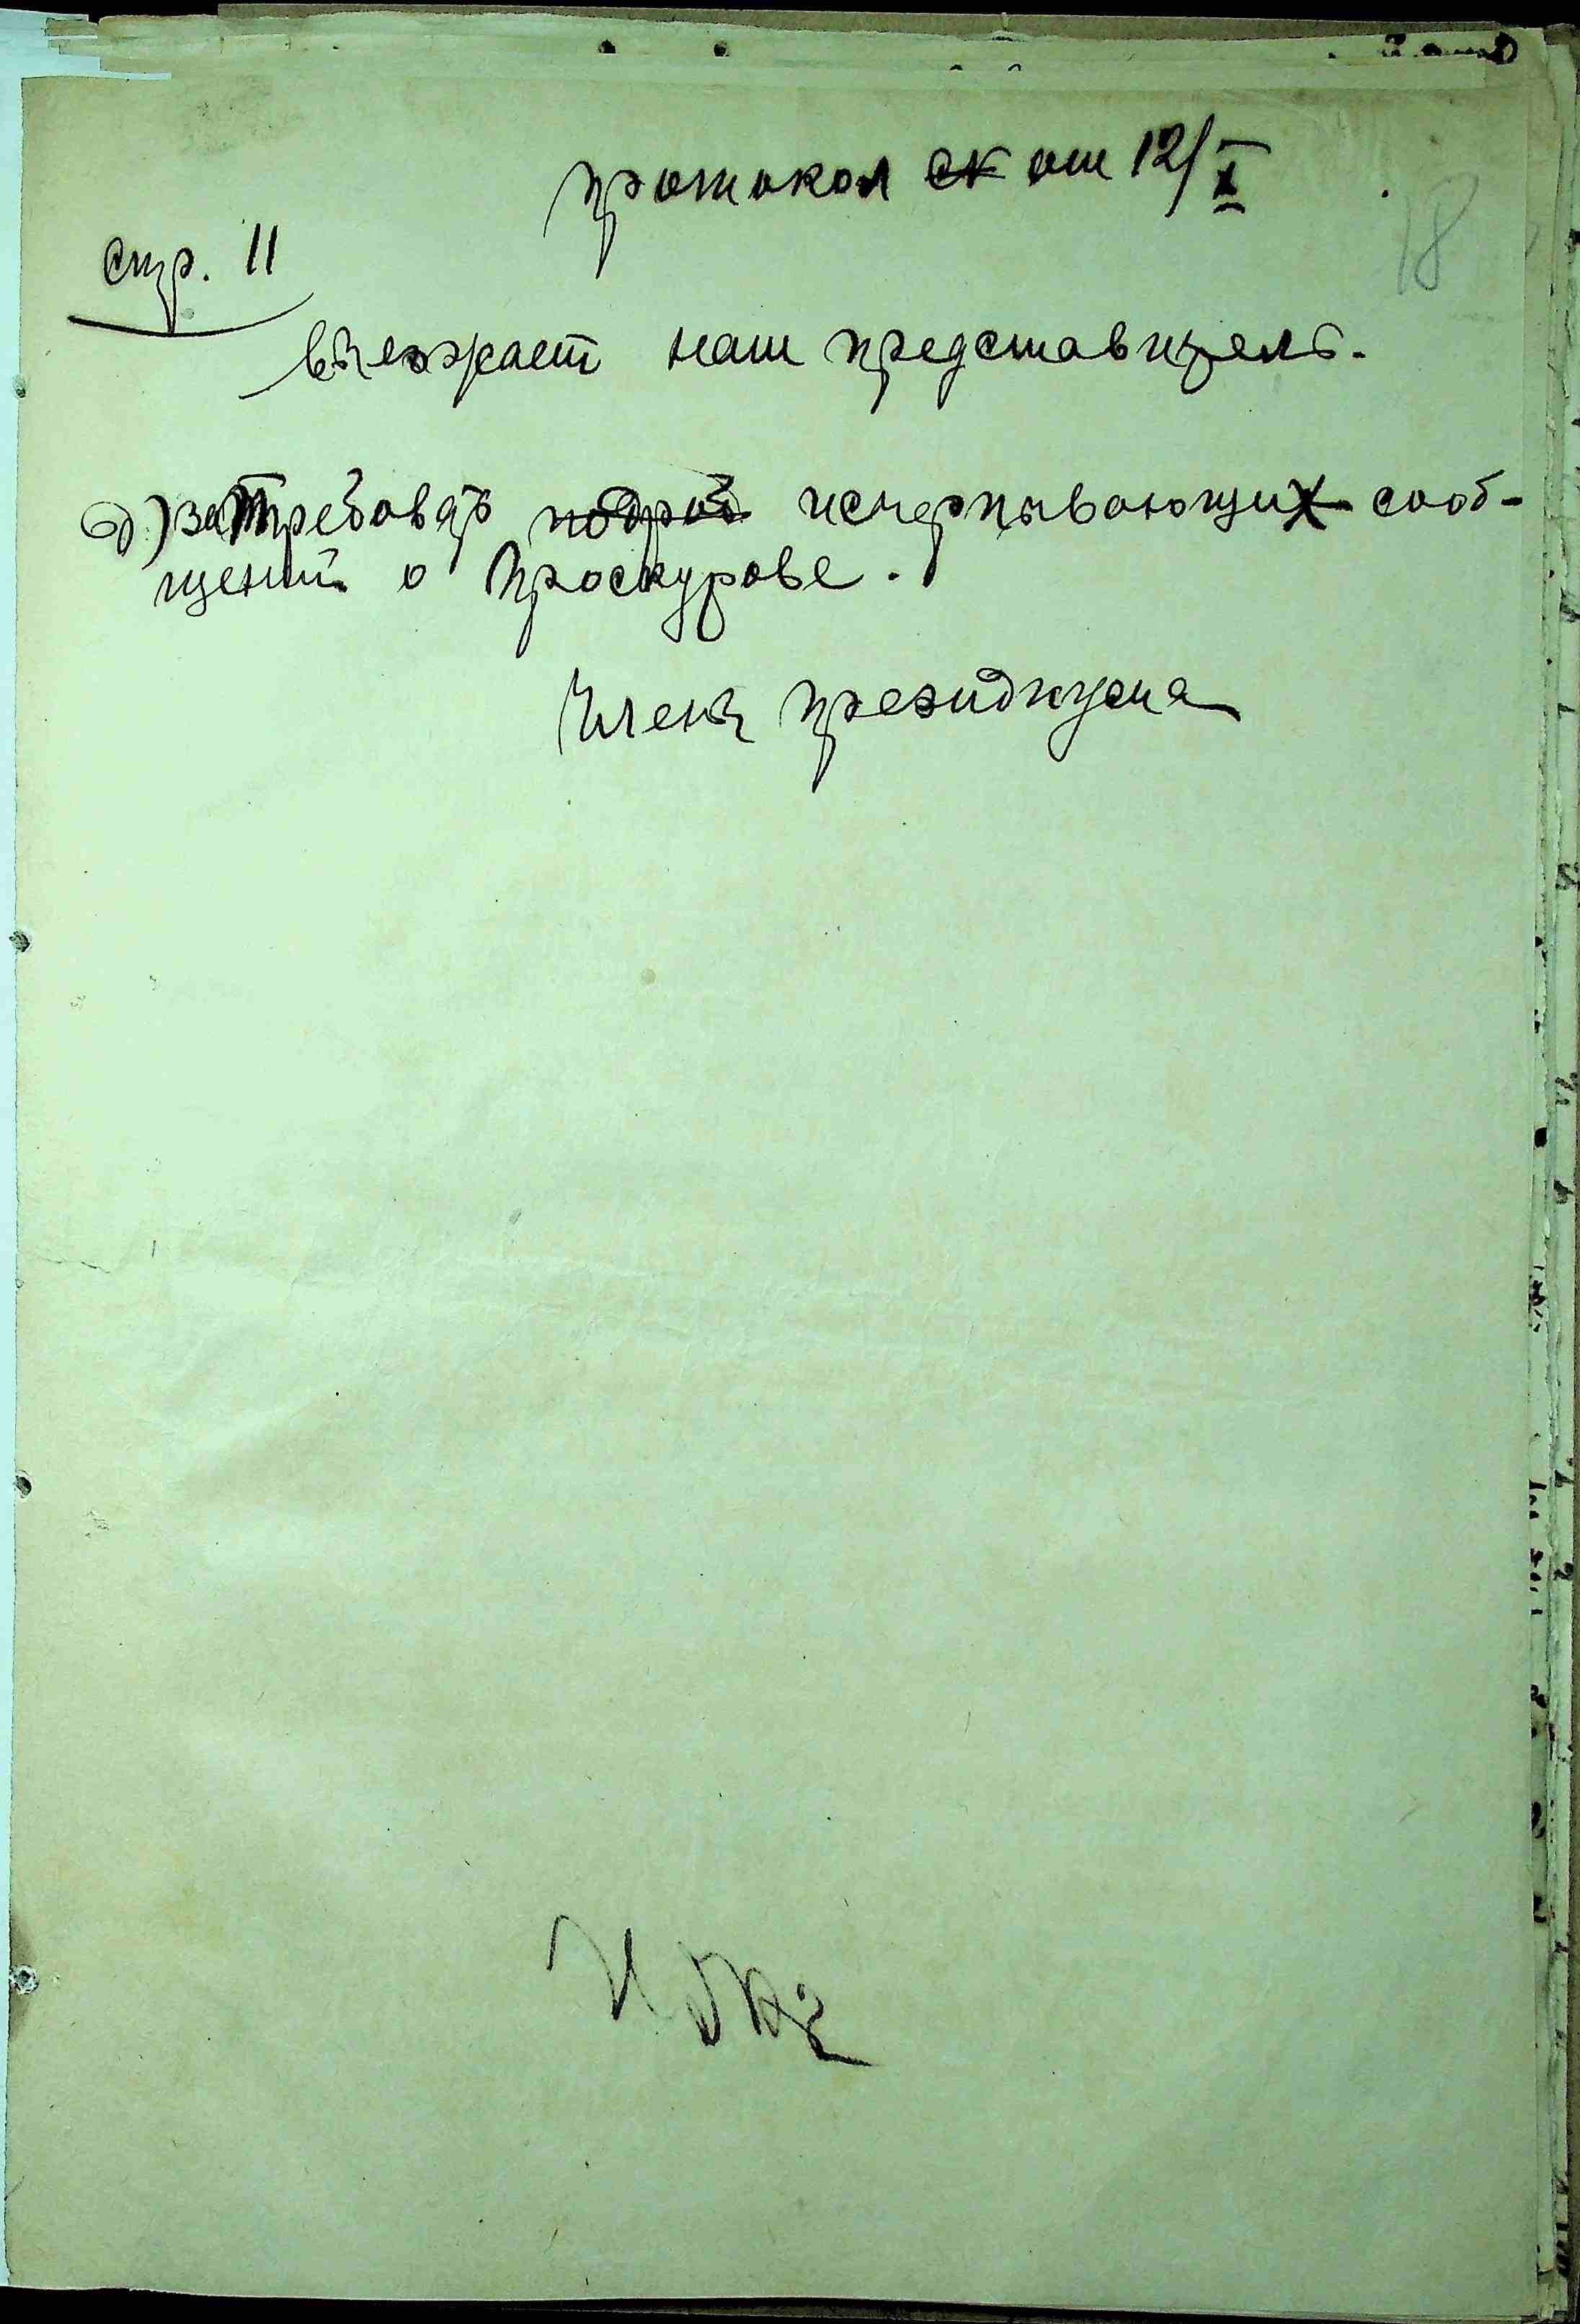 протокол ск от 12/X
18
стр. 11
выезжает наш представитель.
д) затребовать подроб исчерпывающих сооб-
щений о Проскурове.
Члены президиума